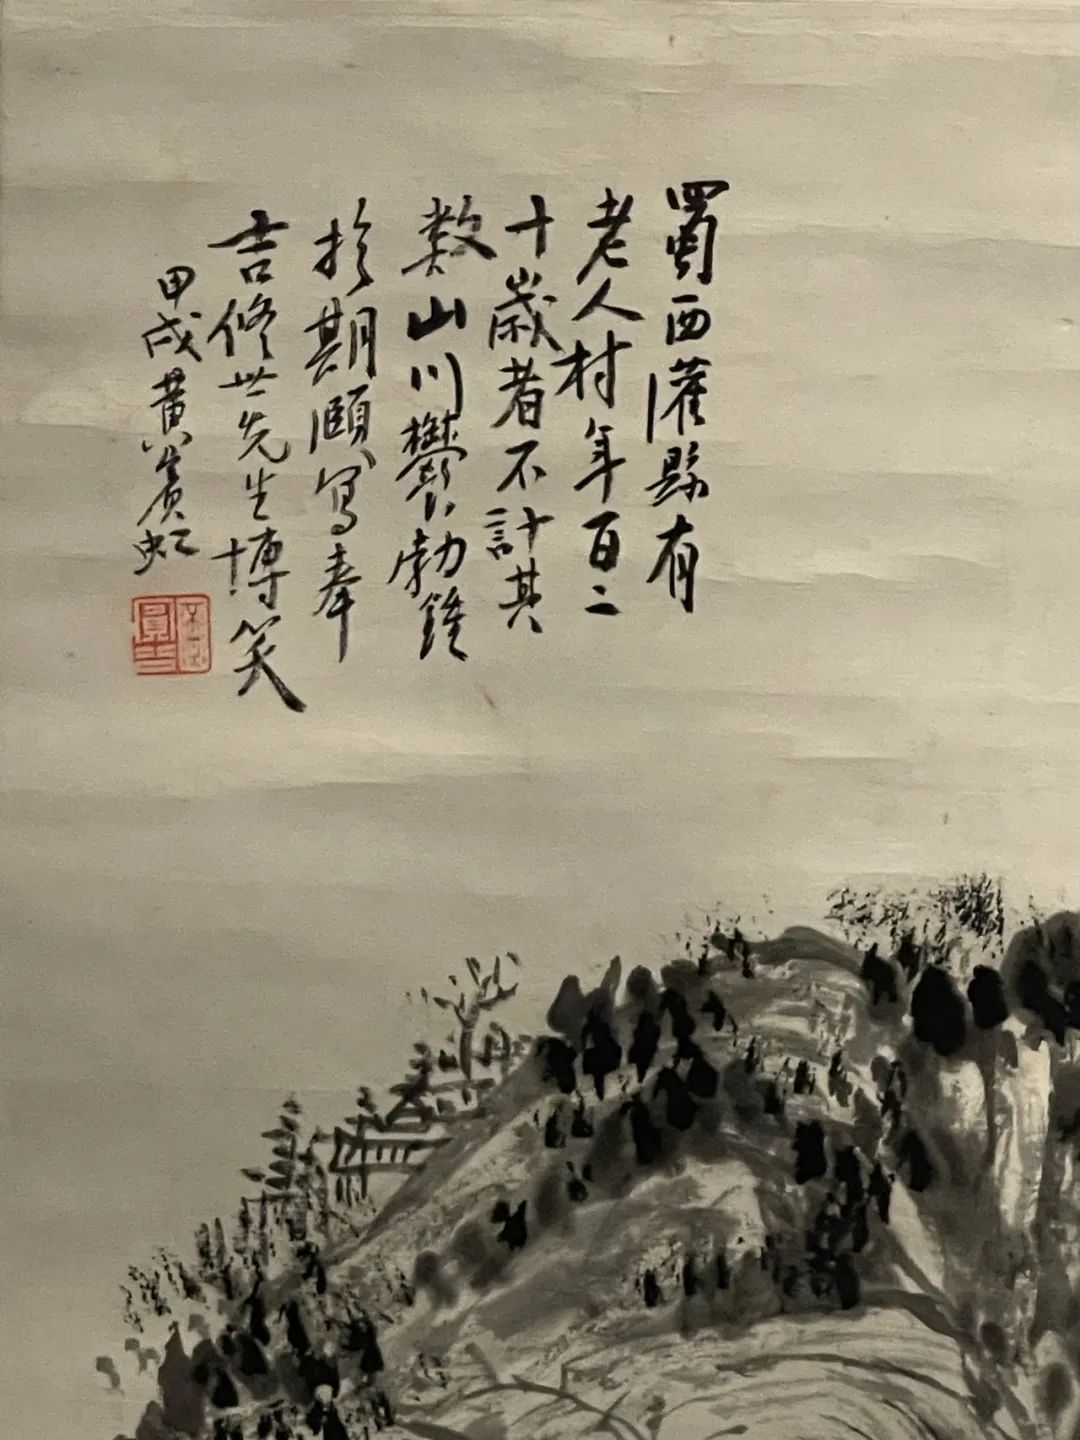 蜀西灌縣有
老人村年百二
十歲者不計其
數山川鬱勃鍾
於期頤寫奉
吉修世先生博笑
甲戌黃賓虹